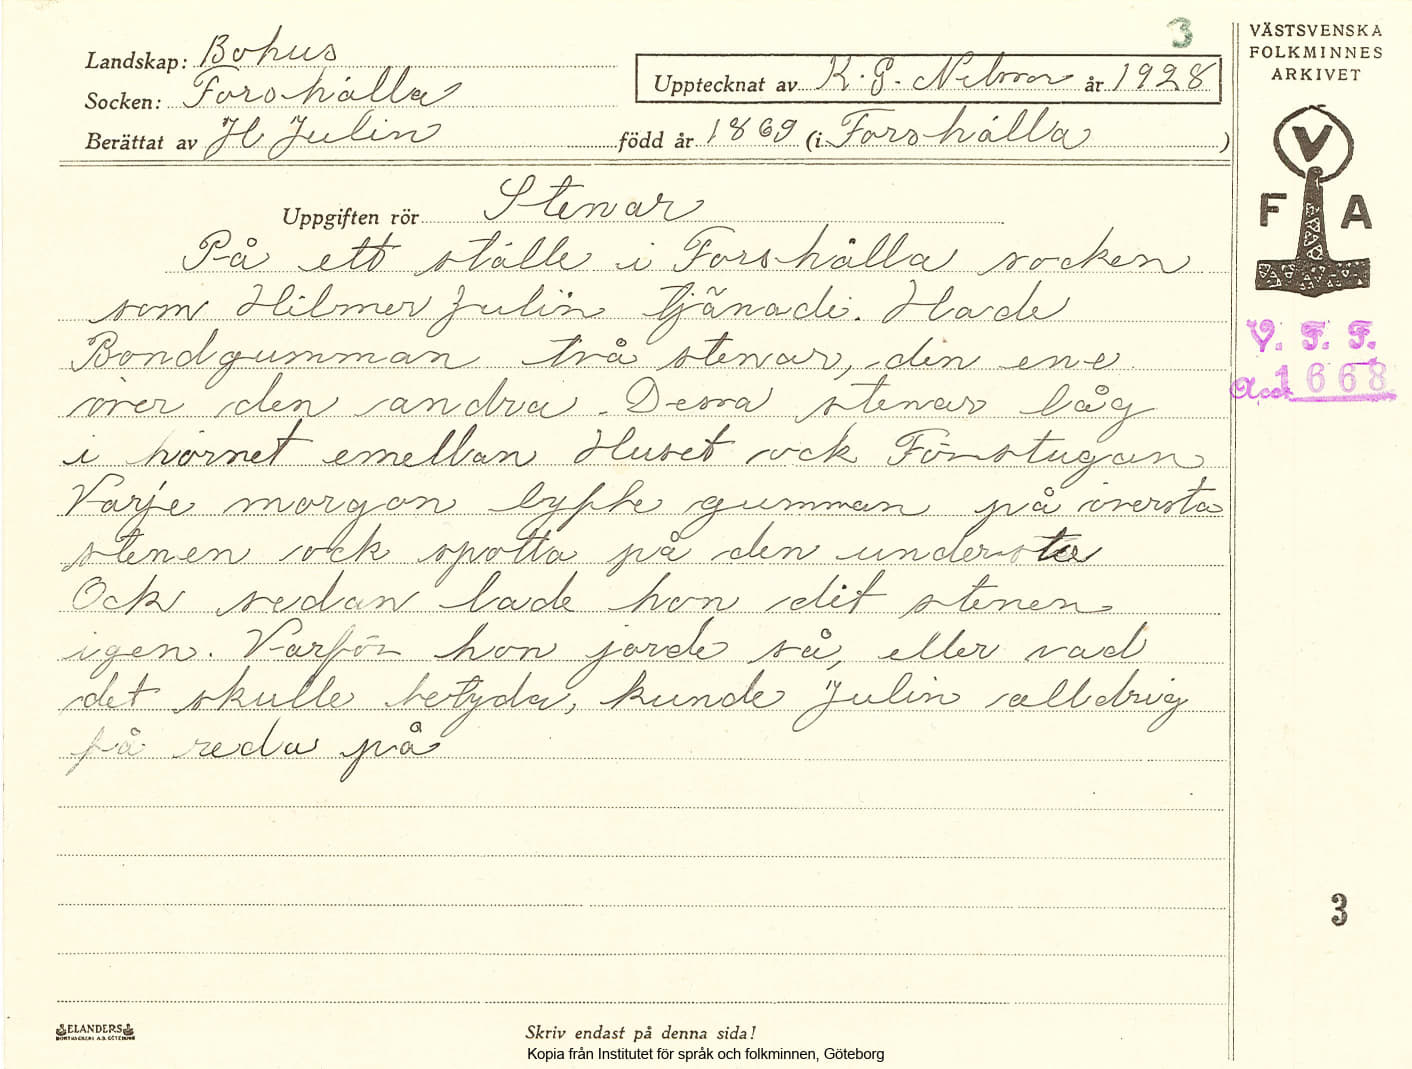 3
Landskap: Bohus
Socken: Forshälla
Berättat av H Julin född år 1869 (i Forshälla )
Upptecknat av K. G. Nilson år 1928
VÄSTSVENSKA
FOLKMINNES
ARKIVET
V
F A
V. F. F.
Acc 1668
Uppgiften rör Stenar
På ett ställe i Forshälla socken
som Hilmer Julin tjänade. Hade
Bondgumman två stenar, den ene
över den andra. Desva stenar låg
i hörnet emellan Huset ock Förstugan
Varje morgon lyfte gumman på översta
stenen ock spotta på den understa
Ock sedan lade hon dit stenen
igen. Varför hon jorde så, eller vad
det skulle betyda, kunde Julin alldrig
få reda på
3
ELANDERS
BOKTRYCKERI A.B. GÖTEBORG
Skriv endast på denna sida!
Kopia från Institutet för språk och folkminnen, Göteborg